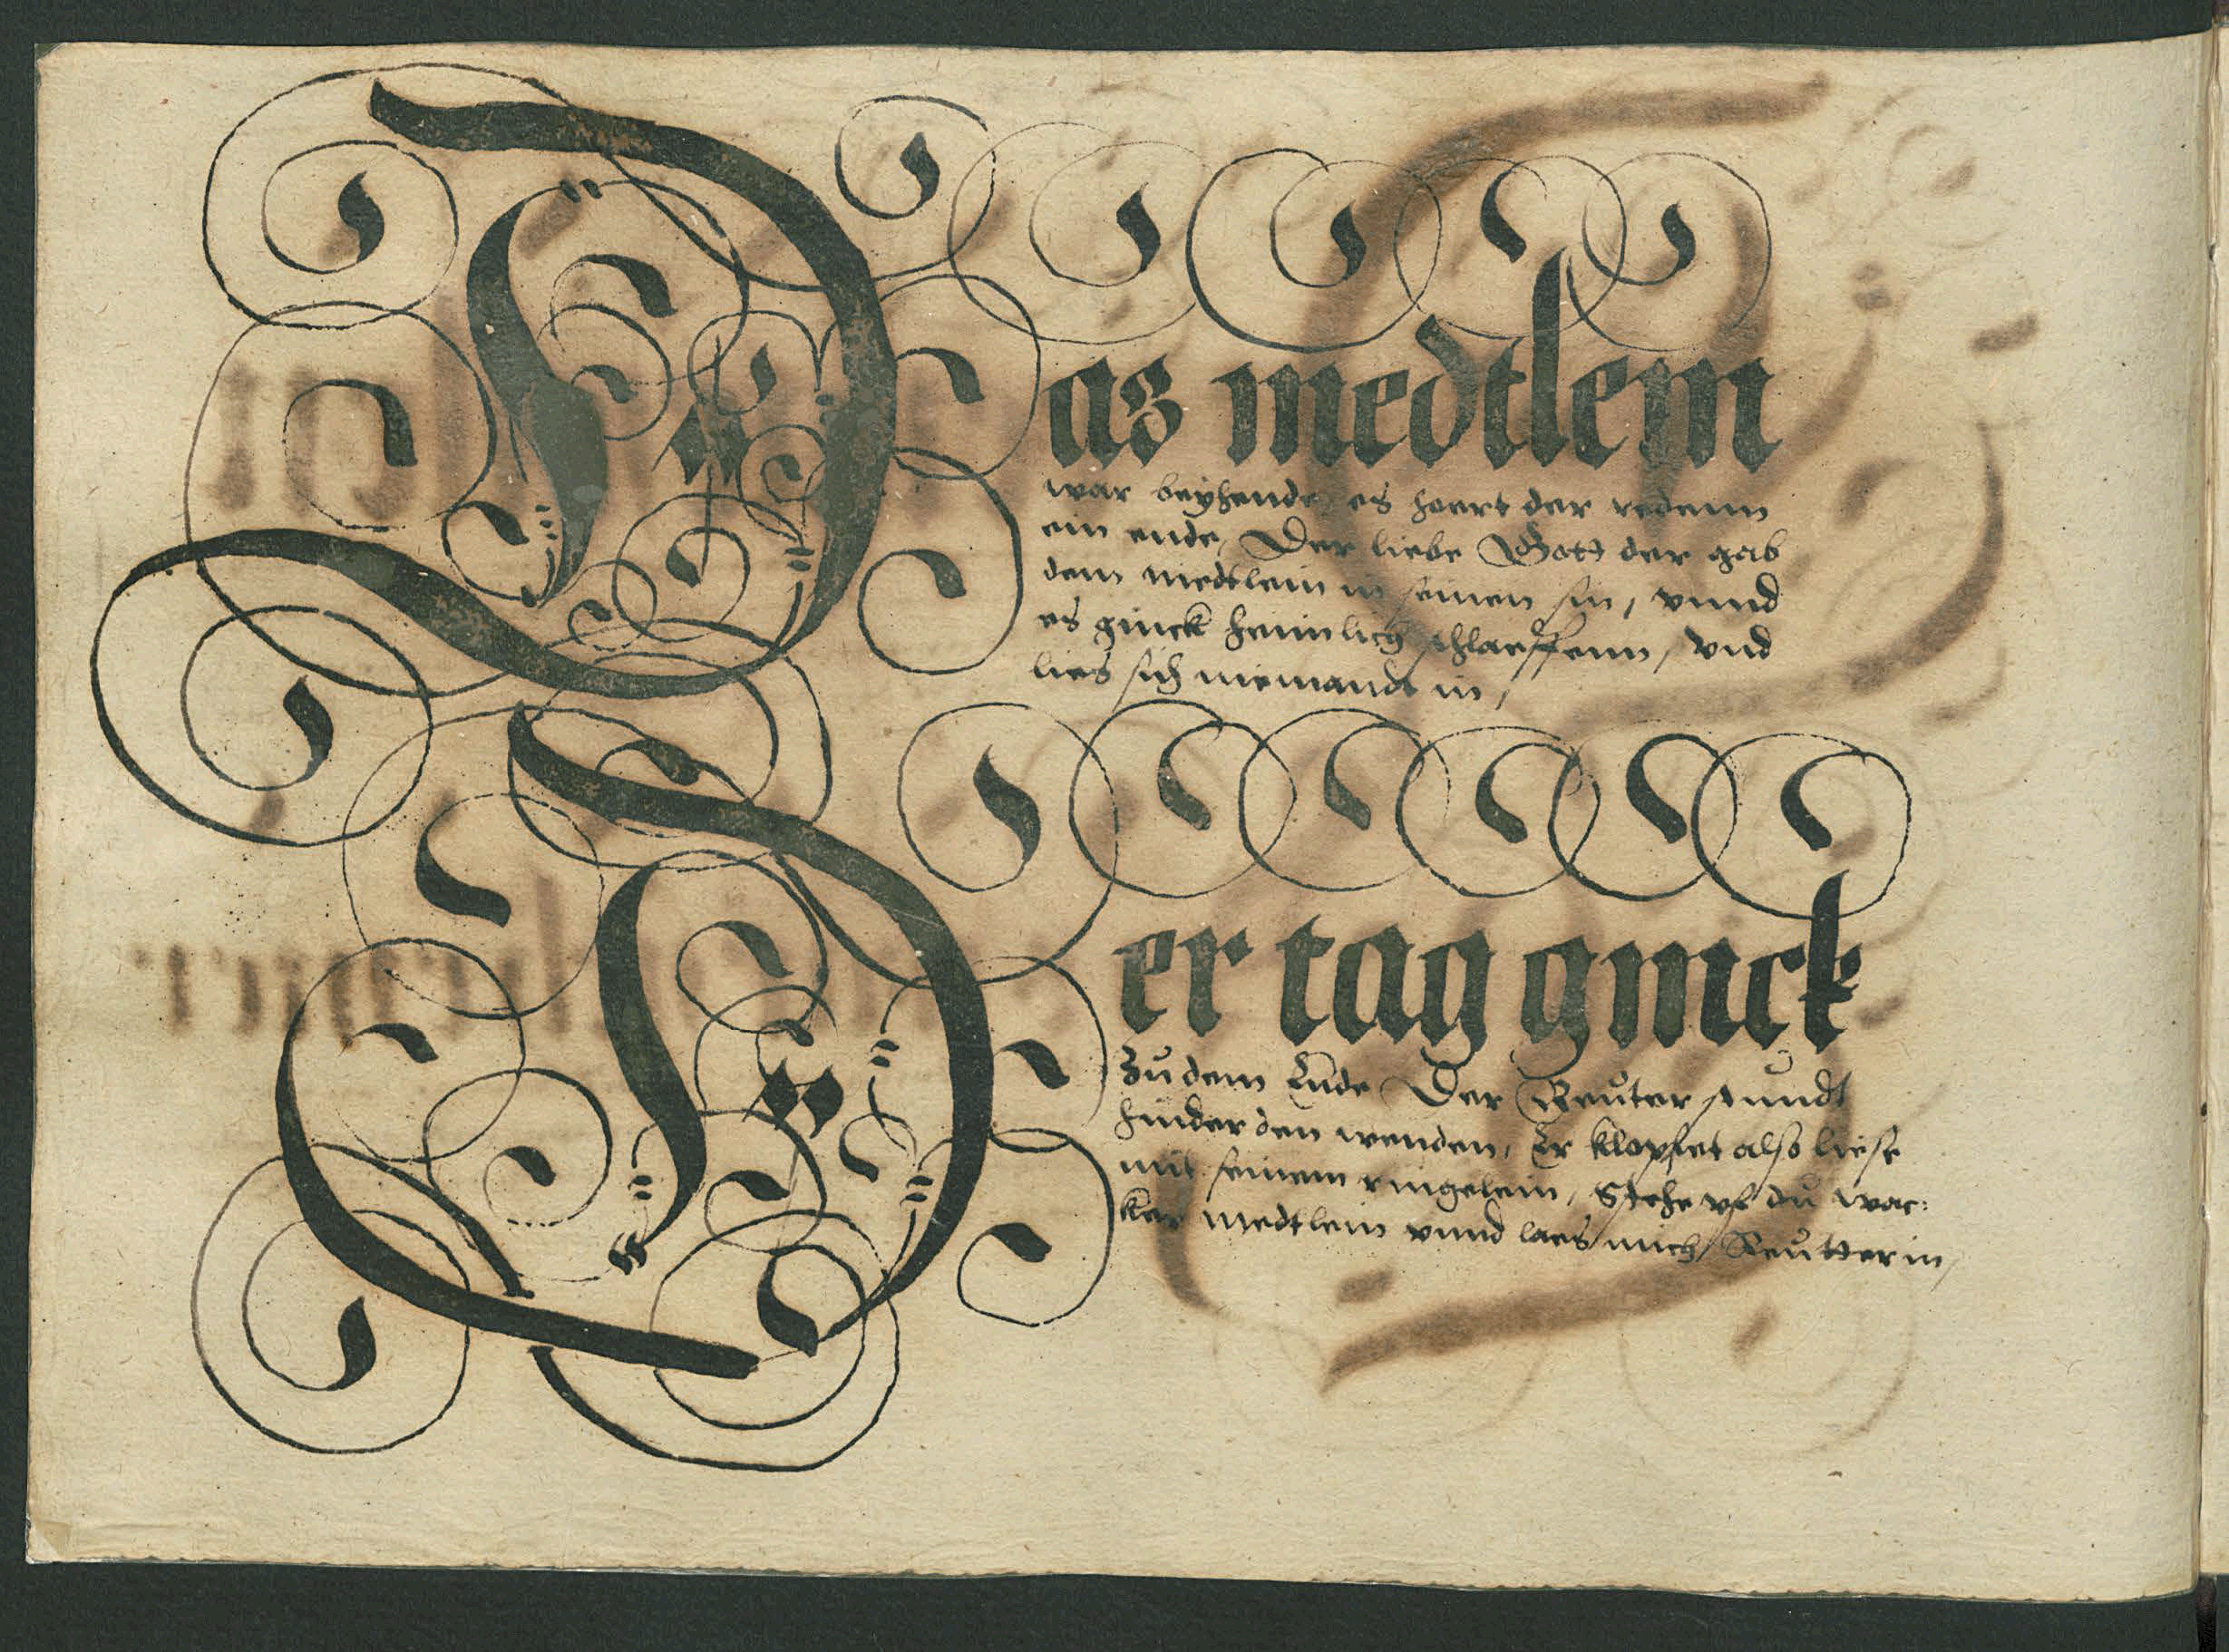 Das medtlein
war behende, es hoert der redenn
ein ende, Der liebe Gott der gab
dem medtlein in seinen sin, vnnd
es ginck heimlich schlaeffenn, vnd
lies sich niemandt in,
Der tag ginck
Zu dem Ende, Der Reuter stundt
hinder den wenden, Er klopfet also liese
mit seinem ringelein, Stehe vf du wac:
ker medtlein vnnd laes mich Reutter in,